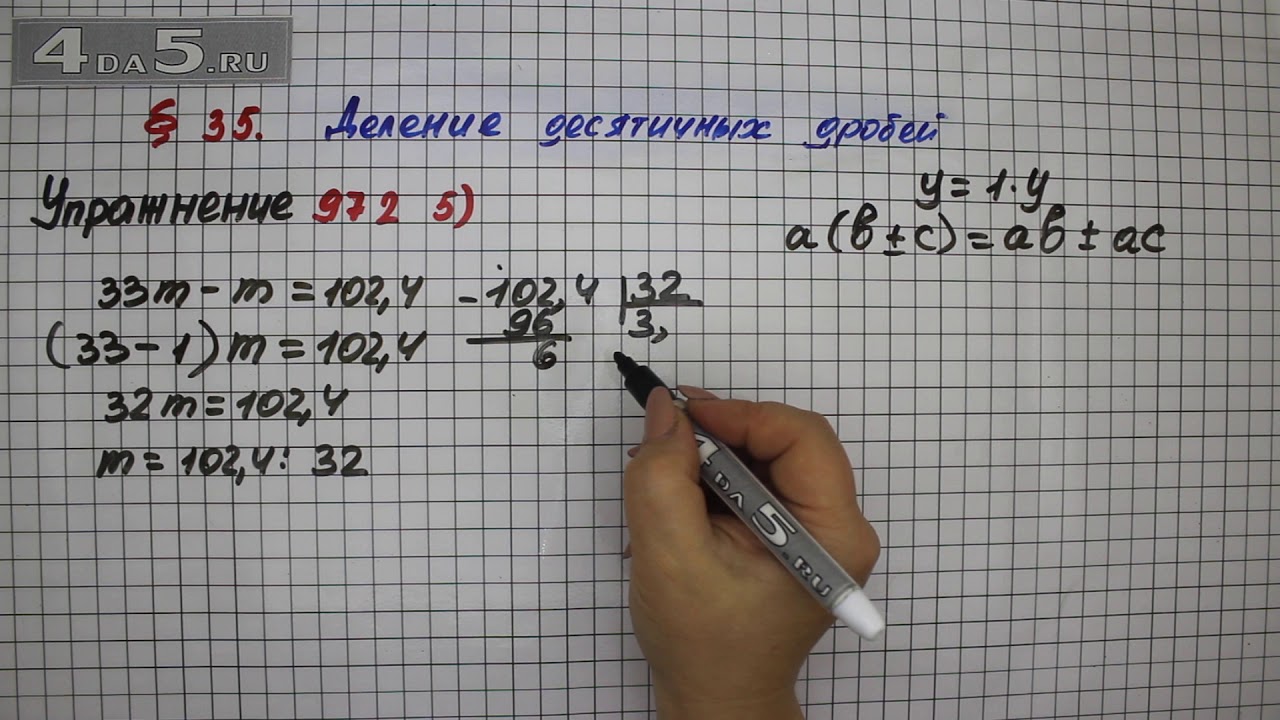 4DA5.RU
§ 35. Деление десятичных дробей
Упражнение 972 5)
y = 1·y
a(b ± c) = ab ± ac
33m - m = 102,4
(33 - 1)m = 102,4
32m = 102,4
m = 102,4 : 32
-102,4 | 32
96 3,
6
4DA5.RU